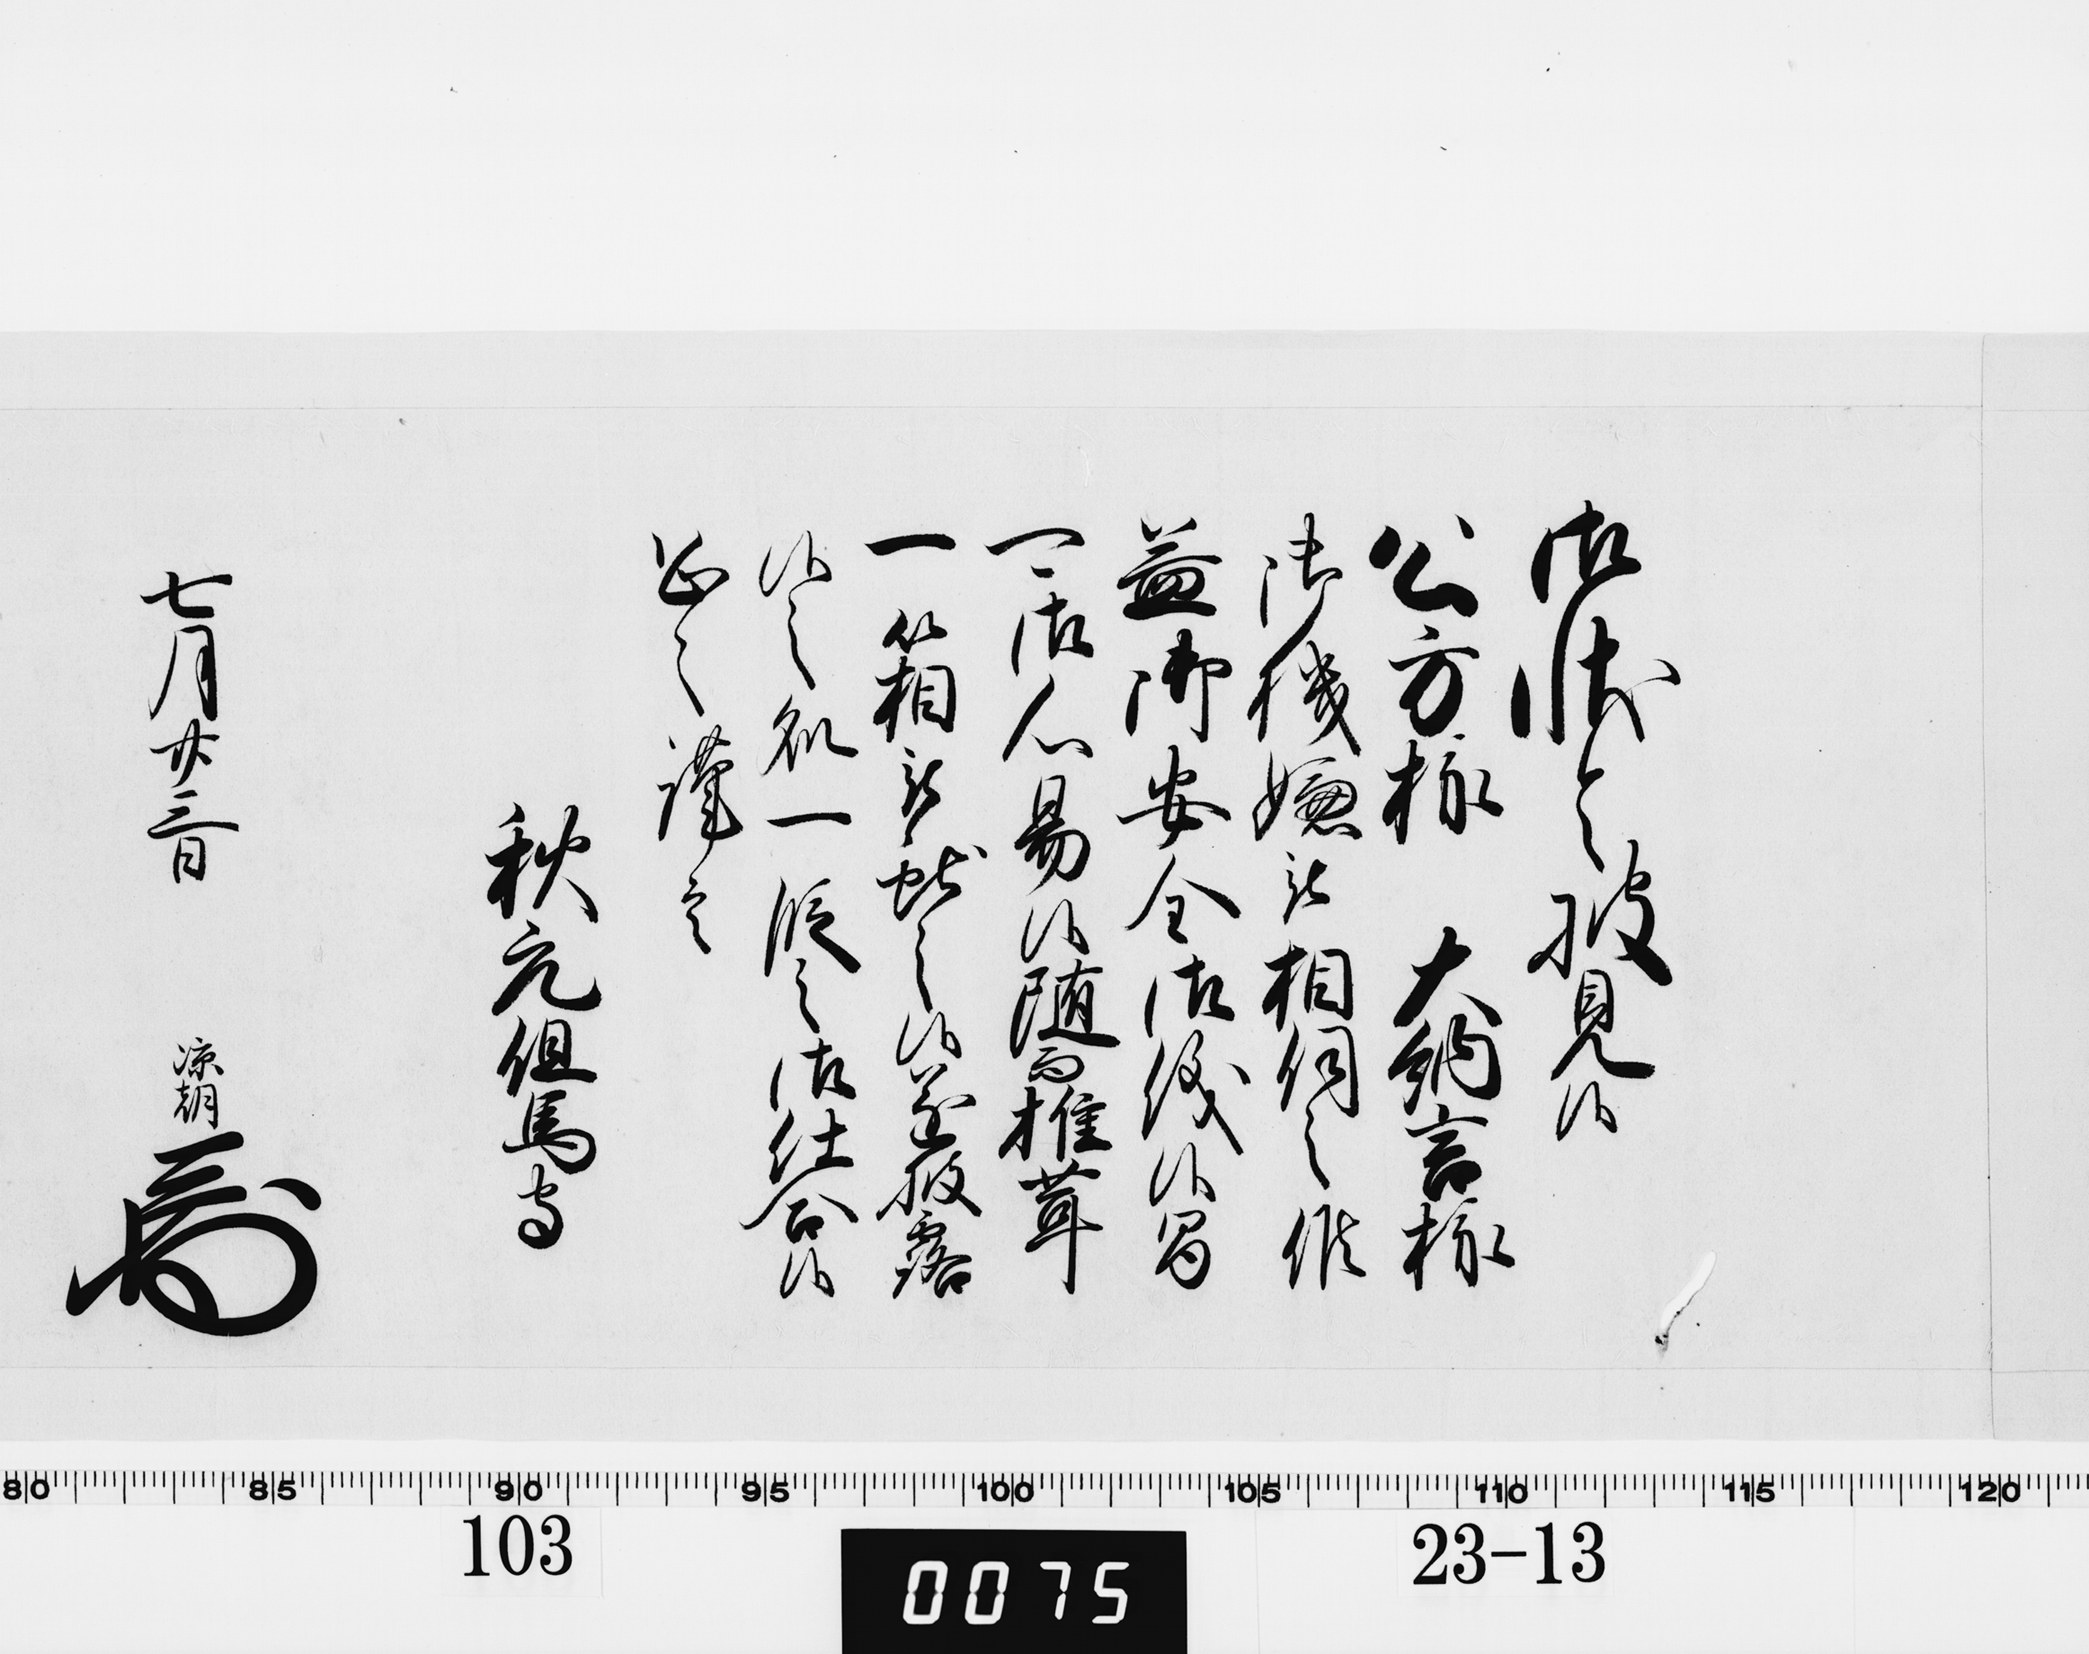 御状令披見候
公方様　大納言様
御機嫌被相伺之候
益御安全御儀候間
可御心易候随而椎茸
一箱被献之候遂披露
候之処一段之御仕合候
恐々謹言
秋元但馬守
七月廿三日　凉朝
80 85 90 95 100 105 110 115 120
103 0075 23-13